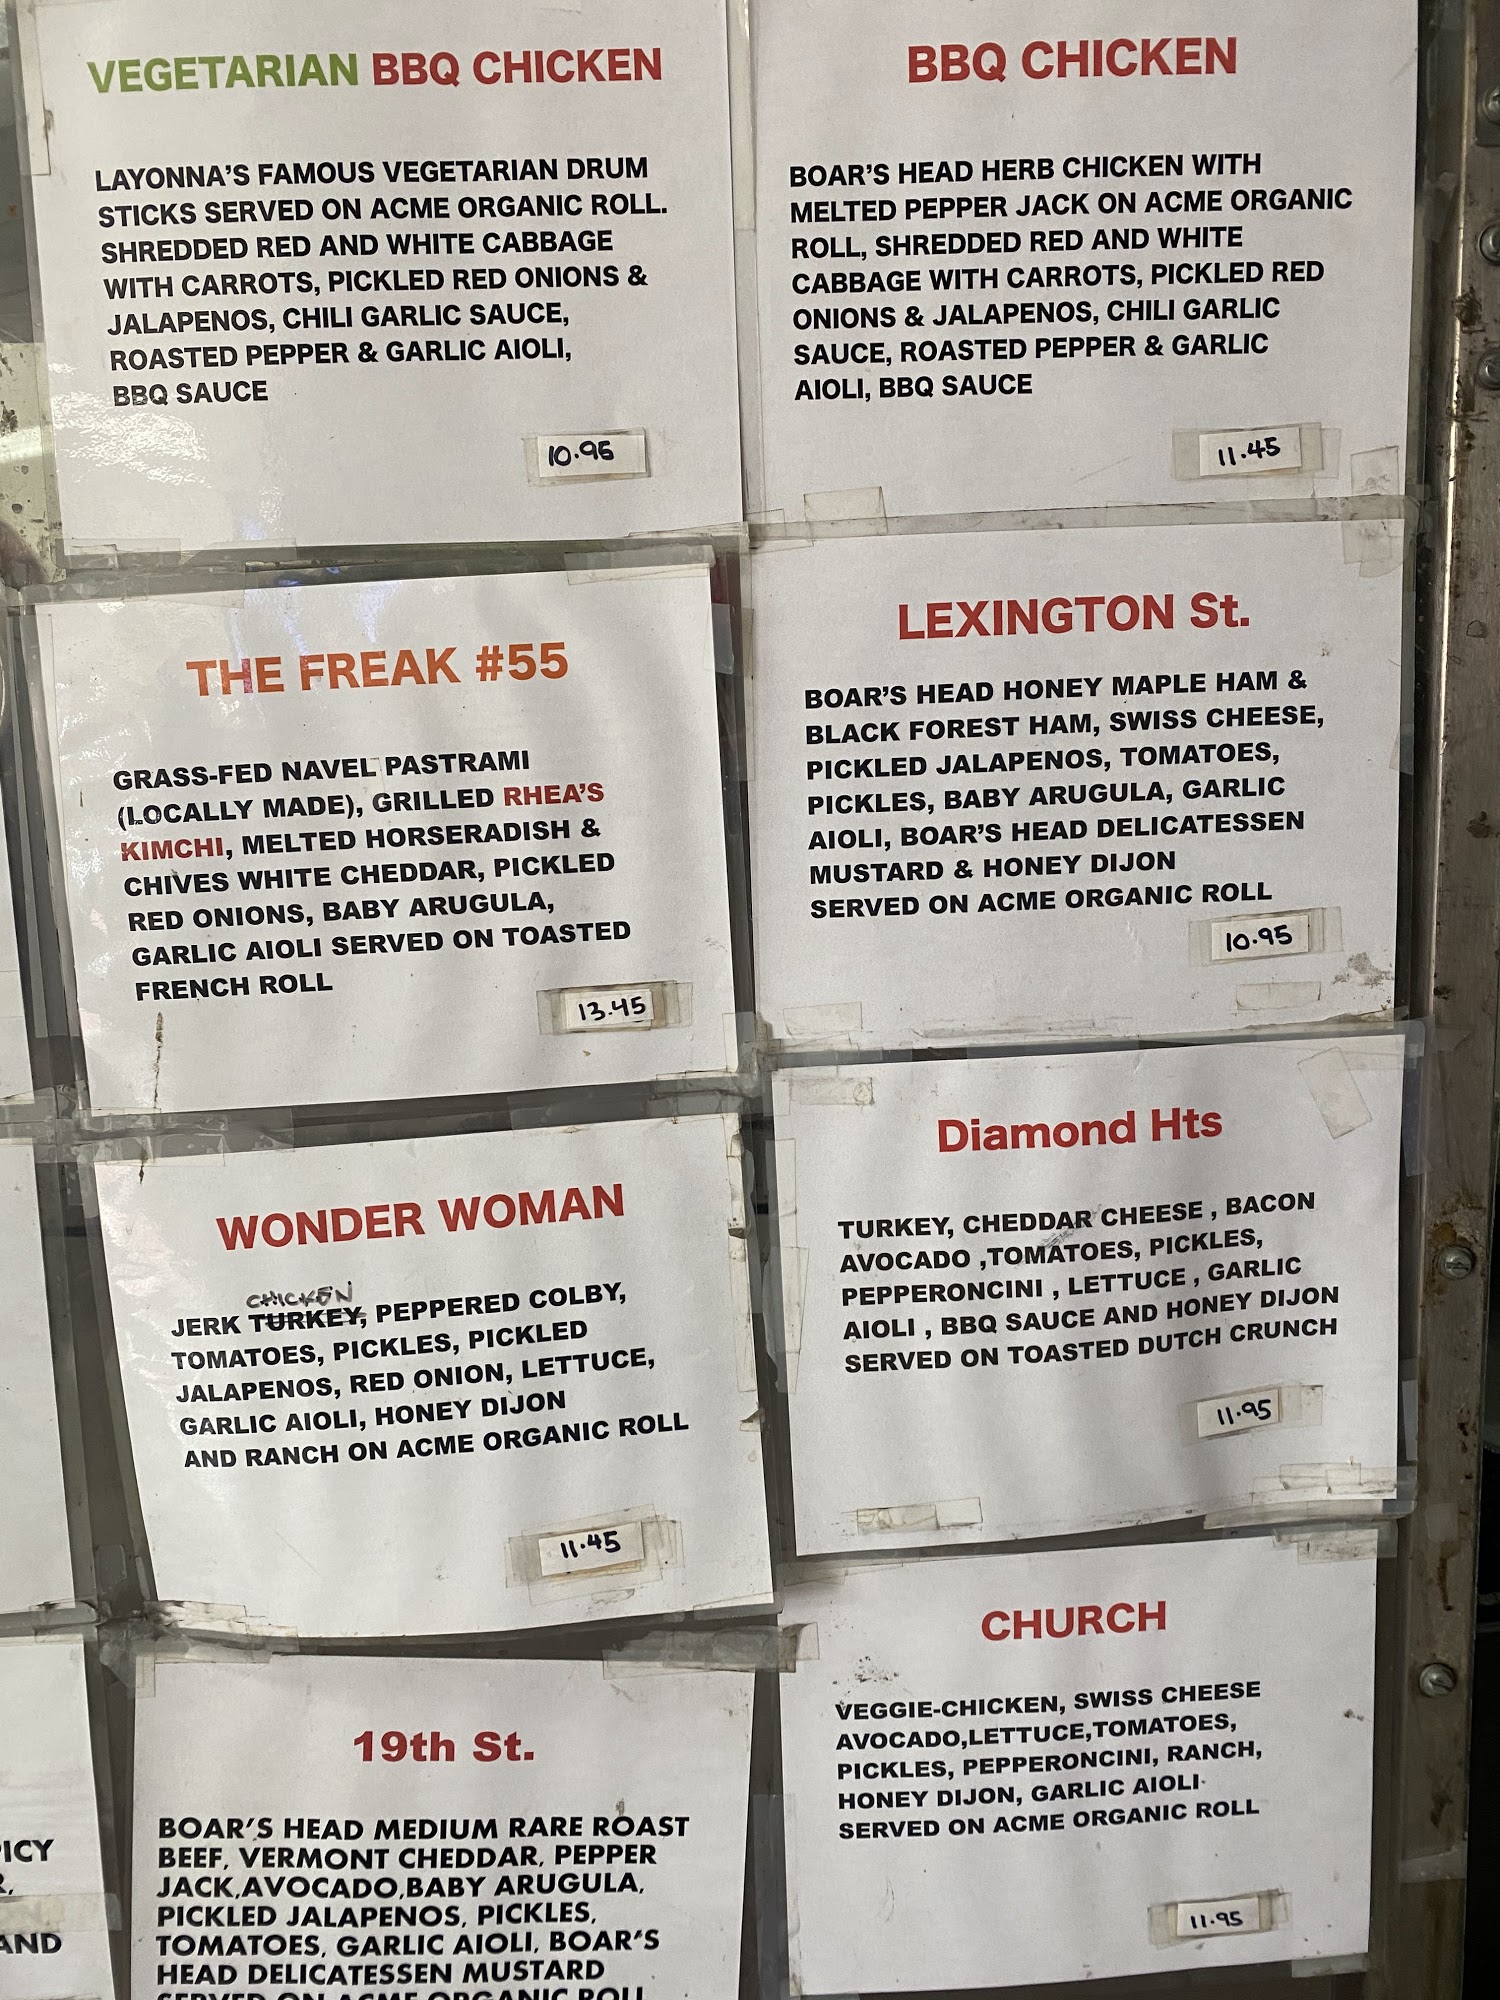 VEGETARIAN BBQ CHICKEN
LAYONNA'S FAMOUS VEGETARIAN DRUM
STICKS SERVED ON ACME ORGANIC ROLL.
SHREDDED RED AND WHITE CABBAGE
WITH CARROTS, PICKLED RED ONIONS &
JALAPENOS, CHILI GARLIC SAUCE,
ROASTED PEPPER & GARLIC AIOLI,
BBQ SAUCE
10.95
BBQ CHICKEN
BOAR'S HEAD HERB CHICKEN WITH
MELTED PEPPER JACK ON ACME ORGANIC
ROLL, SHREDDED RED AND WHITE
CABBAGE WITH CARROTS, PICKLED RED
ONIONS & JALAPENOS, CHILI GARLIC
SAUCE, ROASTED PEPPER & GARLIC
AIOLI, BBQ SAUCE
11.45
THE FREAK #55
GRASS-FED NAVEL PASTRAMI
(LOCALLY MADE), GRILLED RHEA'S
KIMCHI, MELTED HORSERADISH &
CHIVES WHITE CHEDDAR, PICKLED
RED ONIONS, BABY ARUGULA,
GARLIC AIOLI SERVED ON TOASTED
FRENCH ROLL
13.45
LEXINGTON St.
BOAR'S HEAD HONEY MAPLE HAM &
BLACK FOREST HAM, SWISS CHEESE,
PICKLED JALAPENOS, TOMATOES,
PICKLES, BABY ARUGULA, GARLIC
AIOLI, BOAR'S HEAD DELICATESSEN
MUSTARD & HONEY DIJON
SERVED ON ACME ORGANIC ROLL
10.95
WONDER WOMAN
CHICKEN
JERK TURKEY, PEPPERED COLBY,
TOMATOES, PICKLES, PICKLED
JALAPENOS, RED ONION, LETTUCE,
GARLIC AIOLI, HONEY DIJON
AND RANCH ON ACME ORGANIC ROLL
11.45
Diamond Hts
TURKEY, CHEDDAR CHEESE , BACON
AVOCADO ,TOMATOES, PICKLES,
PEPPERONCINI , LETTUCE , GARLIC
AIOLI , BBQ SAUCE AND HONEY DIJON
SERVED ON TOASTED DUTCH CRUNCH
11.95
19th St.
BOAR'S HEAD MEDIUM RARE ROAST
BEEF, VERMONT CHEDDAR, PEPPER
JACK,AVOCADO,BABY ARUGULA,
PICKLED JALAPENOS, PICKLES,
TOMATOES, GARLIC AIOLI, BOAR'S
HEAD DELICATESSEN MUSTARD
SERVED ON ACME ORGANIC ROLL
CHURCH
VEGGIE-CHICKEN, SWISS CHEESE
AVOCADO,LETTUCE,TOMATOES,
PICKLES, PEPPERONCINI, RANCH,
HONEY DIJON, GARLIC AIOLI
SERVED ON ACME ORGANIC ROLL
11.95
AND